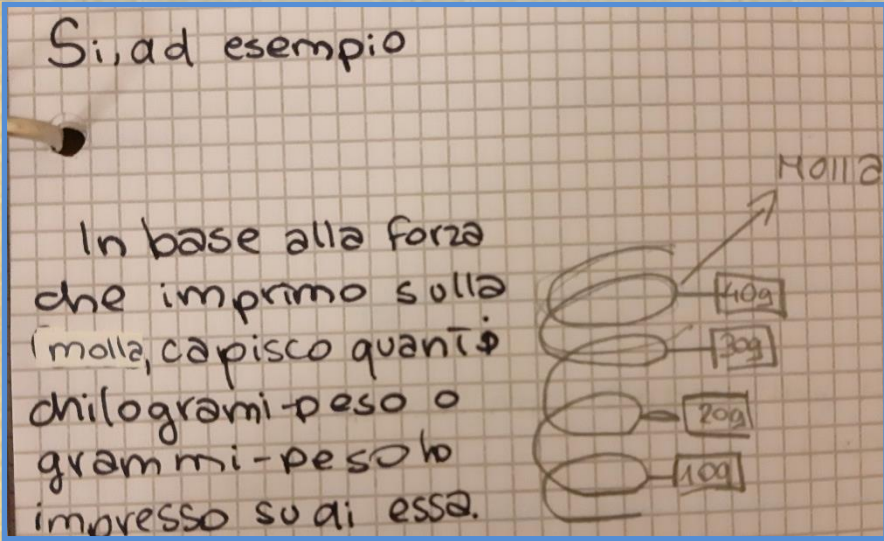 Si, ad esempio
Molla
In base alla forza
che imprimo sulla
molla, capisco quanti
chilogrami-peso o
grammi-peso ho
impresso su di essa.
40g
30g
20g
10g